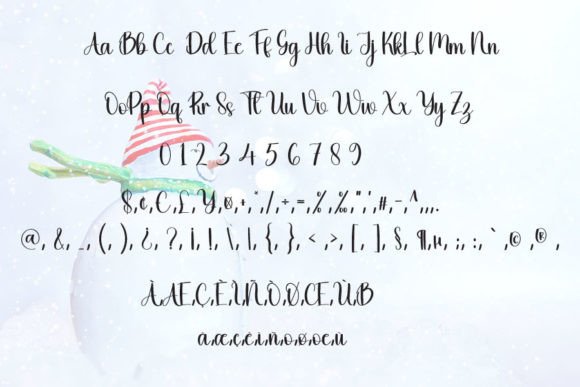 Aa Bb Cc Dd Ee Ff Gg Hh Ii Jj KkLl Mm Nn
OoPp Qq Rr Ss Tt Uu Vv Ww Xx Yy Zz
0 1 2 3 4 5 6 7 8 9
$,¢,€,£,¥,¤,+,*,/,÷,=,%,‰,",',#,-,^,,,.
@, &, _, (, ), ¿, ?, ¡, !, \, |, {, }, < ,>, [, ], §, ¶,µ, ;, :, ` ,© ,® ,
À,Æ,Ç,È,Ì,Ñ,Ò,Ø,Œ,Ù,B
à,æ,ç,è,ì,ñ,ò,ø,œ,ù